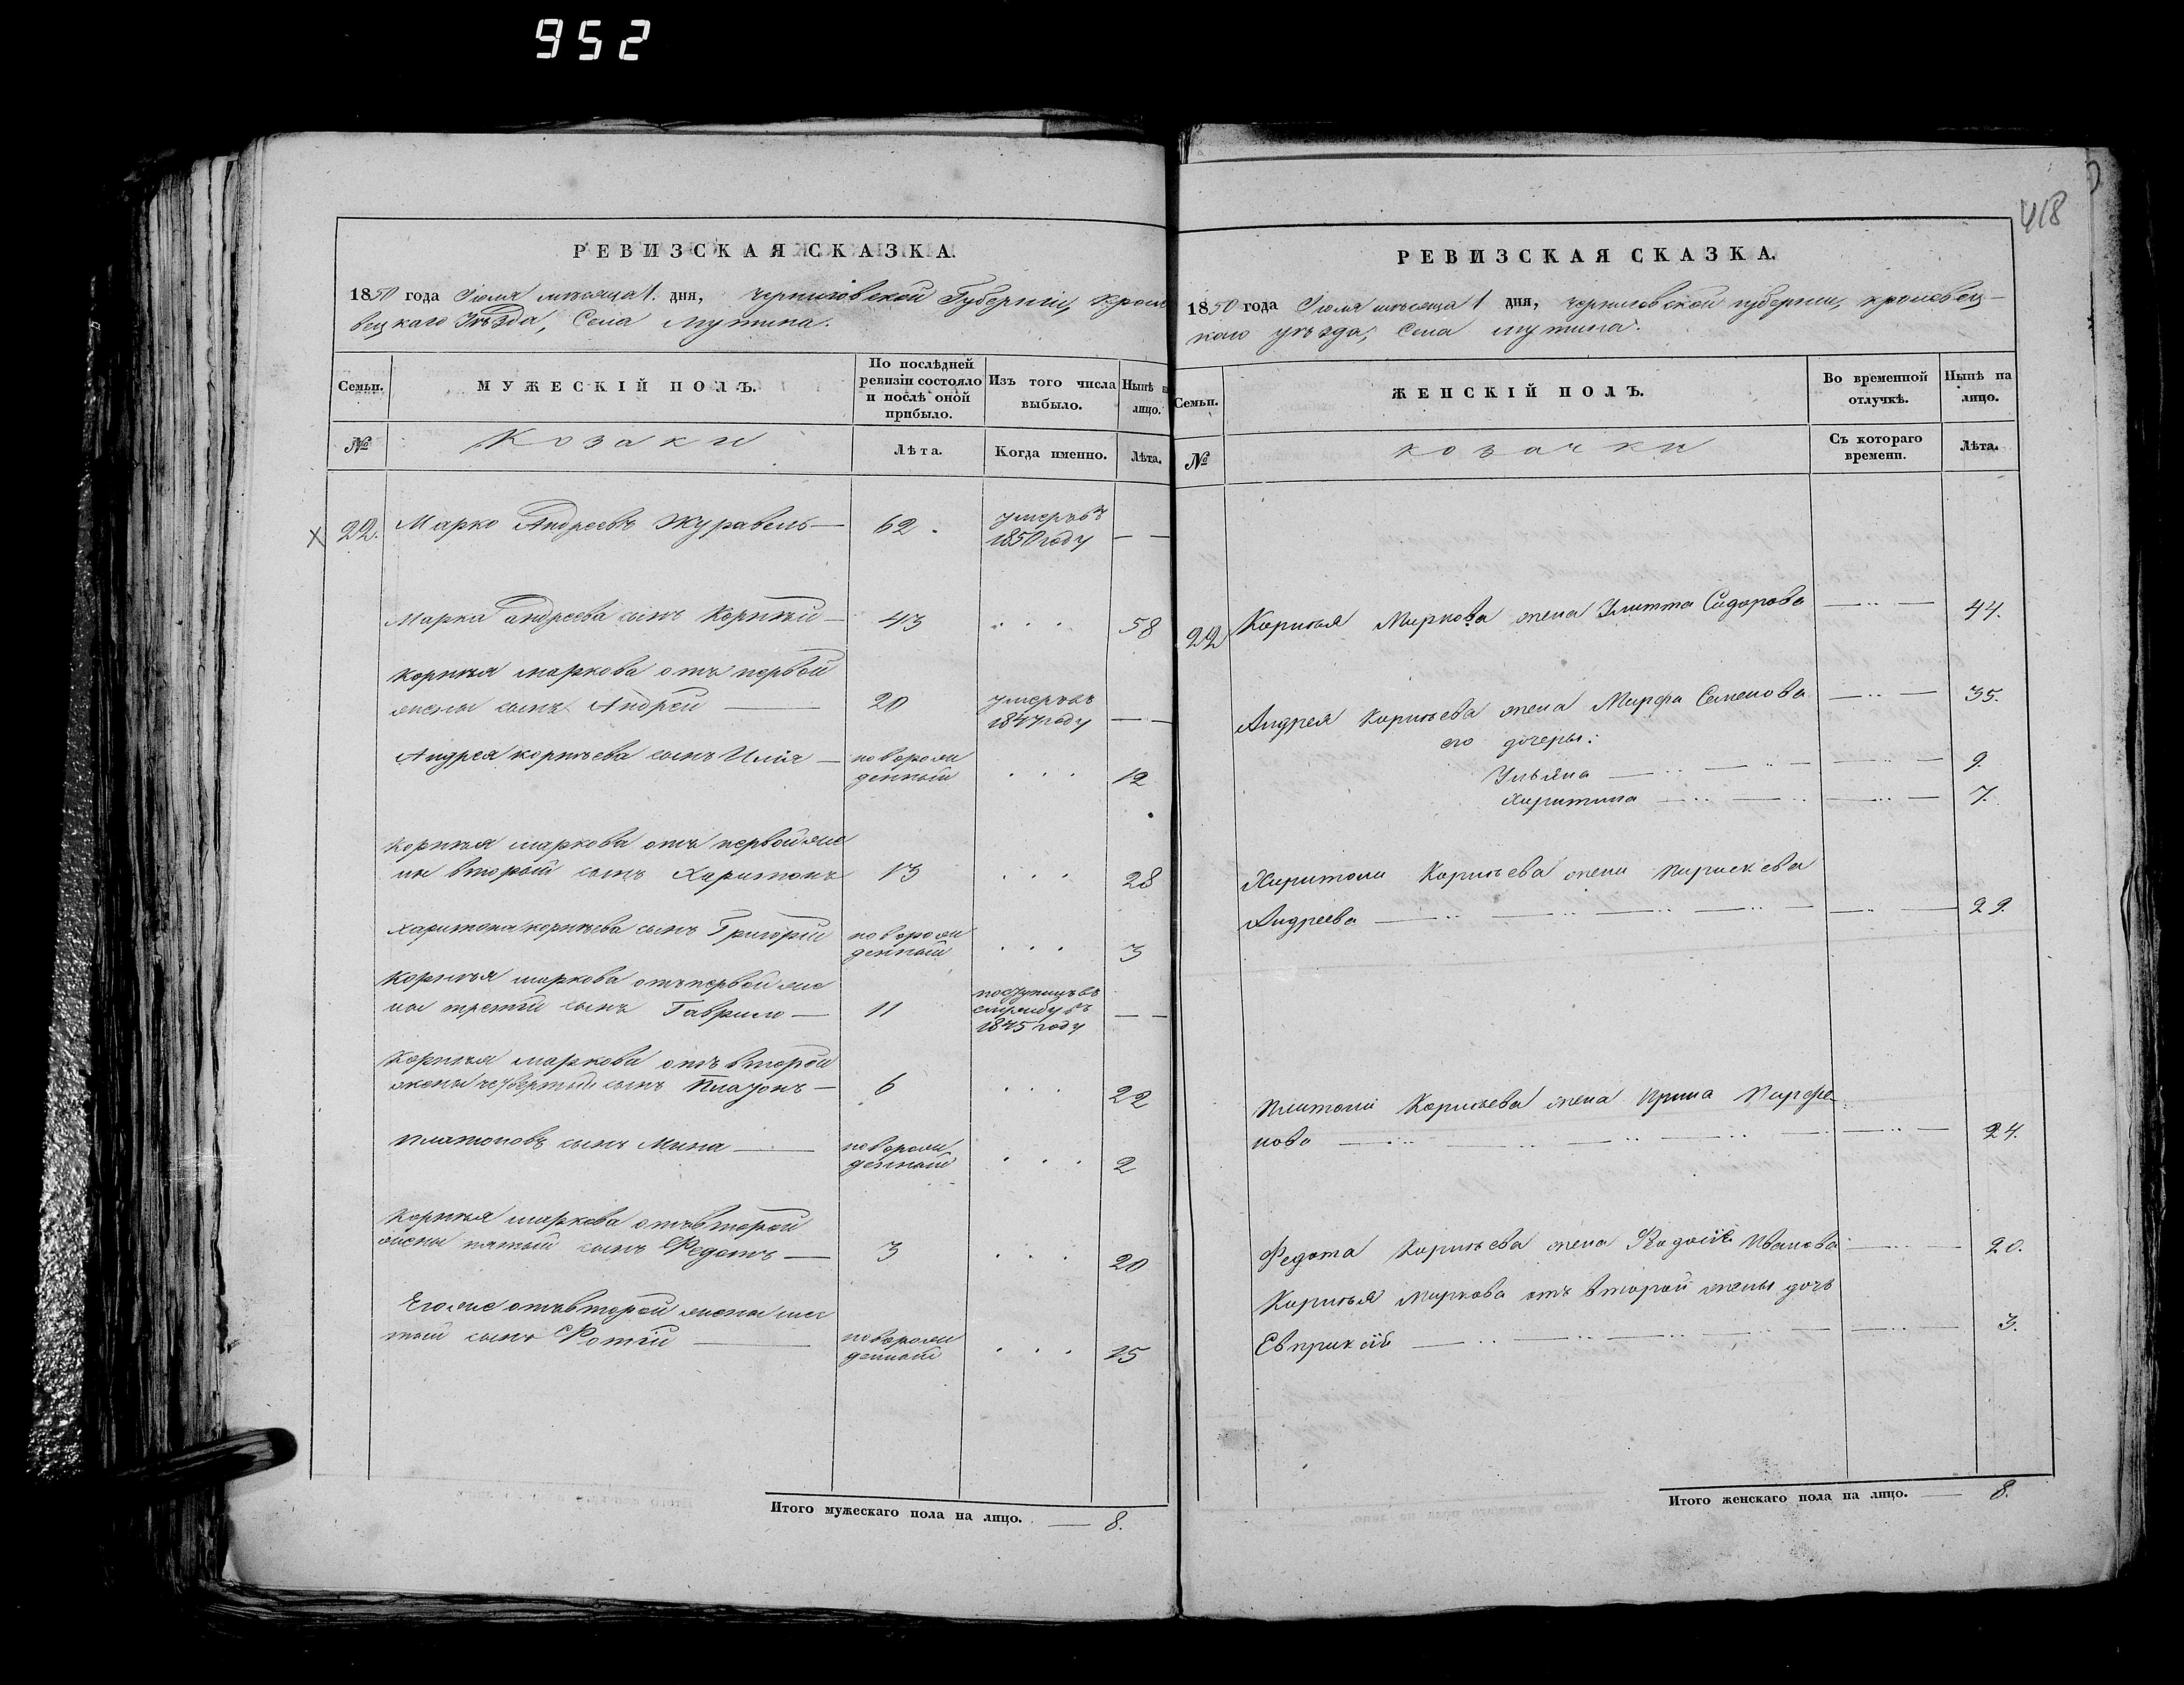 952
418
РЕВИЗСКАЯ СКАЗКА.
1850 года Іюля мѣсяца 1. дня, Черниговской Губерніи, Кроле
вецкаго Уѣзда, Села Мутина.
Семьи.
МУЖЕСКІЙ ПОЛЪ.
По послѣдней ревизіи состояло и послѣ оной прибыло.
Изъ того числа выбыло.
Нынѣ на лицо.
№
Козаки
Лѣта.
Когда именно.
Лѣта.
22. Марко Андреевъ Журавель — 62. умеръ въ
1850 году — —
Марка Андреева сынъ Корнѣй — 43 . . . 58
Корнѣя Маркова отъ первой
жены сынъ Андрей — 20 умеръ въ
1847 году — —
Андрея Корнѣева сынъ Илія — новорож
денный . . . 12
Корнѣя Маркова отъ первой же
ны второй сынъ Харитонъ 13 . . . 28
Харитона Корнѣева сынъ Григорій новорож
денный . . . 3
Корнѣя Маркова отъ первой же
ны третій сынъ Гаврило — 11 въ
службу въ
1845 году — —
Корнѣя Маркова отъ второй
жены четвертый сынъ Платонъ — 6 . . . 22
Платоновъ сынъ Мина — новорож
денный . . . 2
Корнѣя Маркова отъ второй
жены пятый сынъ Федотъ — 3 . . . 20
Его же отъ второй жены шес
тый сынъ Фотій — новорож
денный . . . 15
Итого мужескаго пола на лицо. — 8.
РЕВИЗСКАЯ СКАЗКА.
1850 года Іюля мѣсяца 1 дня, Черниговской губерніи, Кролевец–
каго уѣзда, Села Мутина.
Семьи.
ЖЕНСКІЙ ПОЛЪ.
Во временной отлучкѣ.
Нынѣ на лицо.
№
Козачки
Съ котораго времени.
Лѣта.
22 Корнѣя Маркова жена Улитта Сидорова — 44.
Андрея Корнѣева жена Марфа Семенова — 35.
его дочеры:
Ульяна — 9.
Харитина — 7.
Харитона Корнѣева жена Параскева
Андреева — 29.
Платона Корнѣева жена Ирина Парфе–
нова — 24.
Федота Корнѣева жена Ивановa — 20.
Корнѣя Маркова отъ второй жены дочь
— 3.
Итого женскаго пола на лицо. — 8.